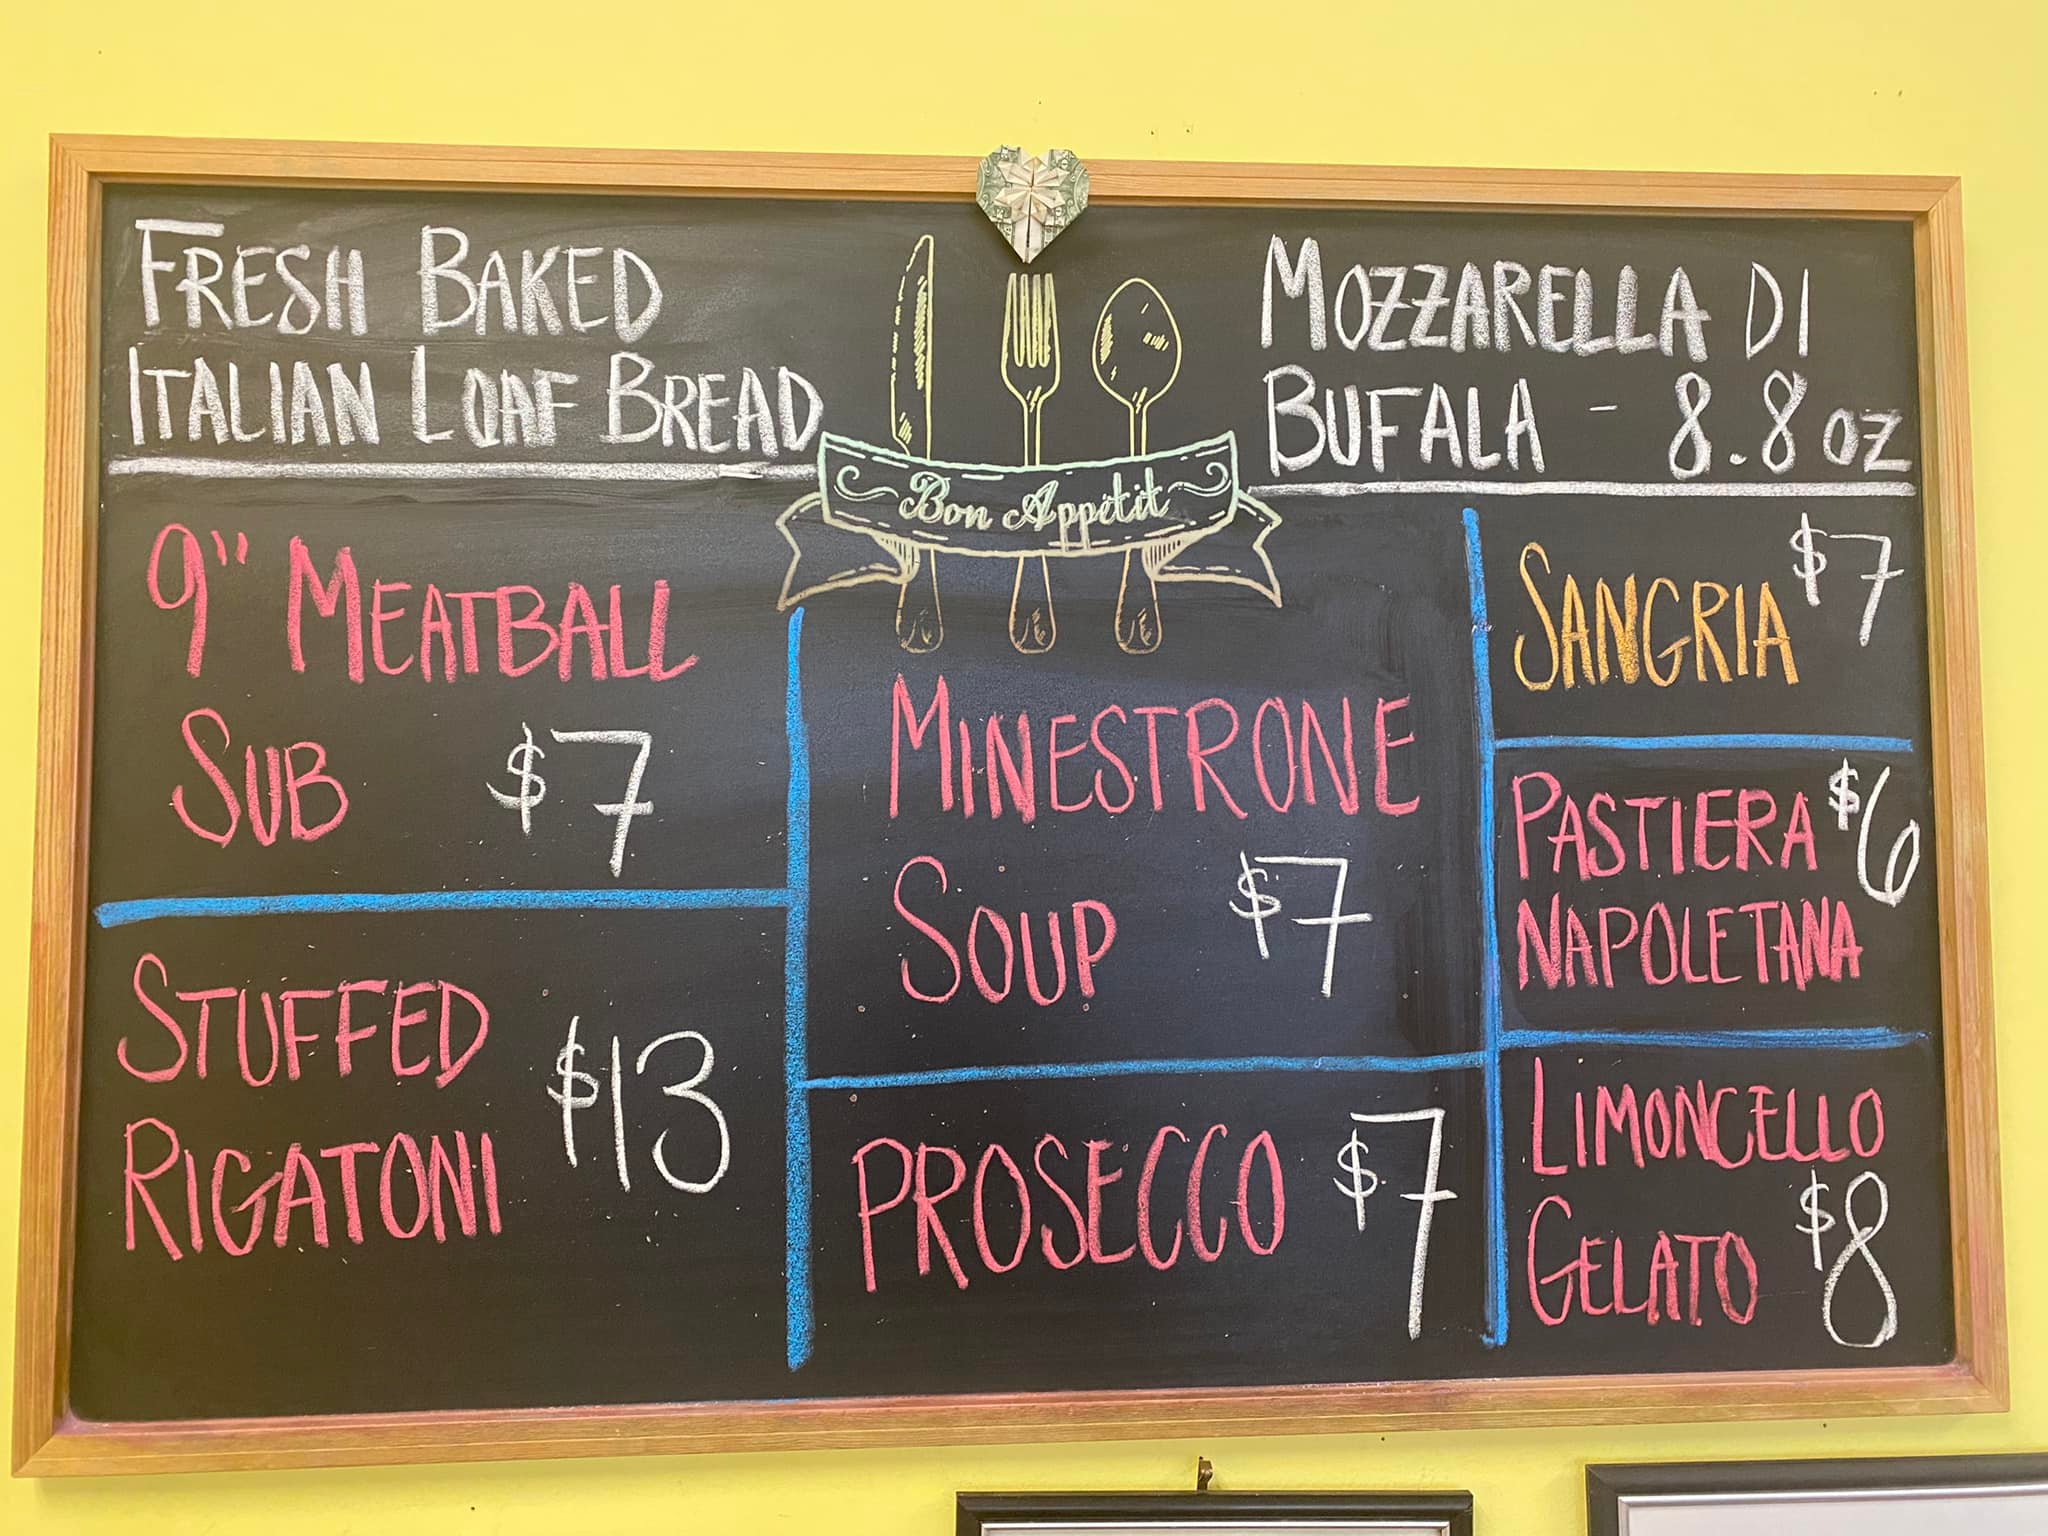 FRESH BAKED
ITALIAN LOAF BREAD
MOZZARELLA DI
BUFALA - 8.8 OZ
Bon Appétit
9" MEATBALL
SUB $7
STUFFED
RIGATONI $13
MINESTRONE
SOUP $7
PROSECCO $7
SANGRIA $7
PASTIERA $6
NAPOLETANA
LIMONCELLO
GELATO $8